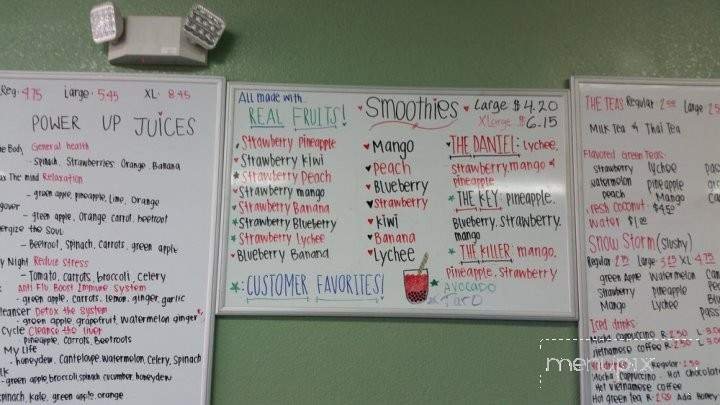 Reg. 4.75 Large. 5.45 XL. 8.45
POWER UP JUICES
Body General health
- Spinach. Strawberries. Orange. Banana
The mind Relaxation
- green apple, pineapple, Lime, Orange
- green apple. Orange. carrot. beetroot
the Soul
- Beetroot, spinach, carrots, green apple
Night Reduce Stress
- Tomato, Carrots, broccoli, Celery
Anti Flu Boost Immune System
- green apple, carrots, lemon, ginger, garlic
Cleanser Detox the system
- green apple, grapefruit, watermelon ginger
Cycle Cleanse the liver
pineapple, Carrots, Beetroots
My Life
- honeydew, Canteloupe, watermelon, Celery, Spinach
- green apple, broccoli, spinach cucumber, honeydew
spinach, kale, green apple, orange
All made with...
REAL FRUITS!
Strawberry Pineapple
Strawberry Kiwi
Strawberry Peach
Strawberry mango
Strawberry Banana
Strawberry Blueberry
Strawberry Lychee
Blueberry Banana
: CUSTOMER FAVORITES!
Smoothies
Mango
Peach
Blueberry
Strawberry
Kiwi
Banana
Lychee
Large $4.20
XLarge $6.15
THE DANIEL: Lychee,
strawberry, mango
pineapple
THE KEY: pineapple.
Blueberry, Strawberry,
mango
THE KILLER: mango,
pineapple, strawberry
AVOCADO
TARO
THE TEAS Regular Large
Milk Tea & Thai Tea
Flavored Green Teas:
Strawberry Lychee
watermelon Pineapple
peach Mango
Fresh Coconut. $4.50
Water
Snow Storm (slushy)
Regular Large XL
green Apple Watermelon
Strawberry Pineapple
Mango Lychee
Iced drinks
Mocha Cappuccino R 2.50
Vietnamese coffee R
Regular
Mocha Cappuccino. Hot Chocolate
Hot Vietnamese coffee
Hot green tea Add Honey
menupix